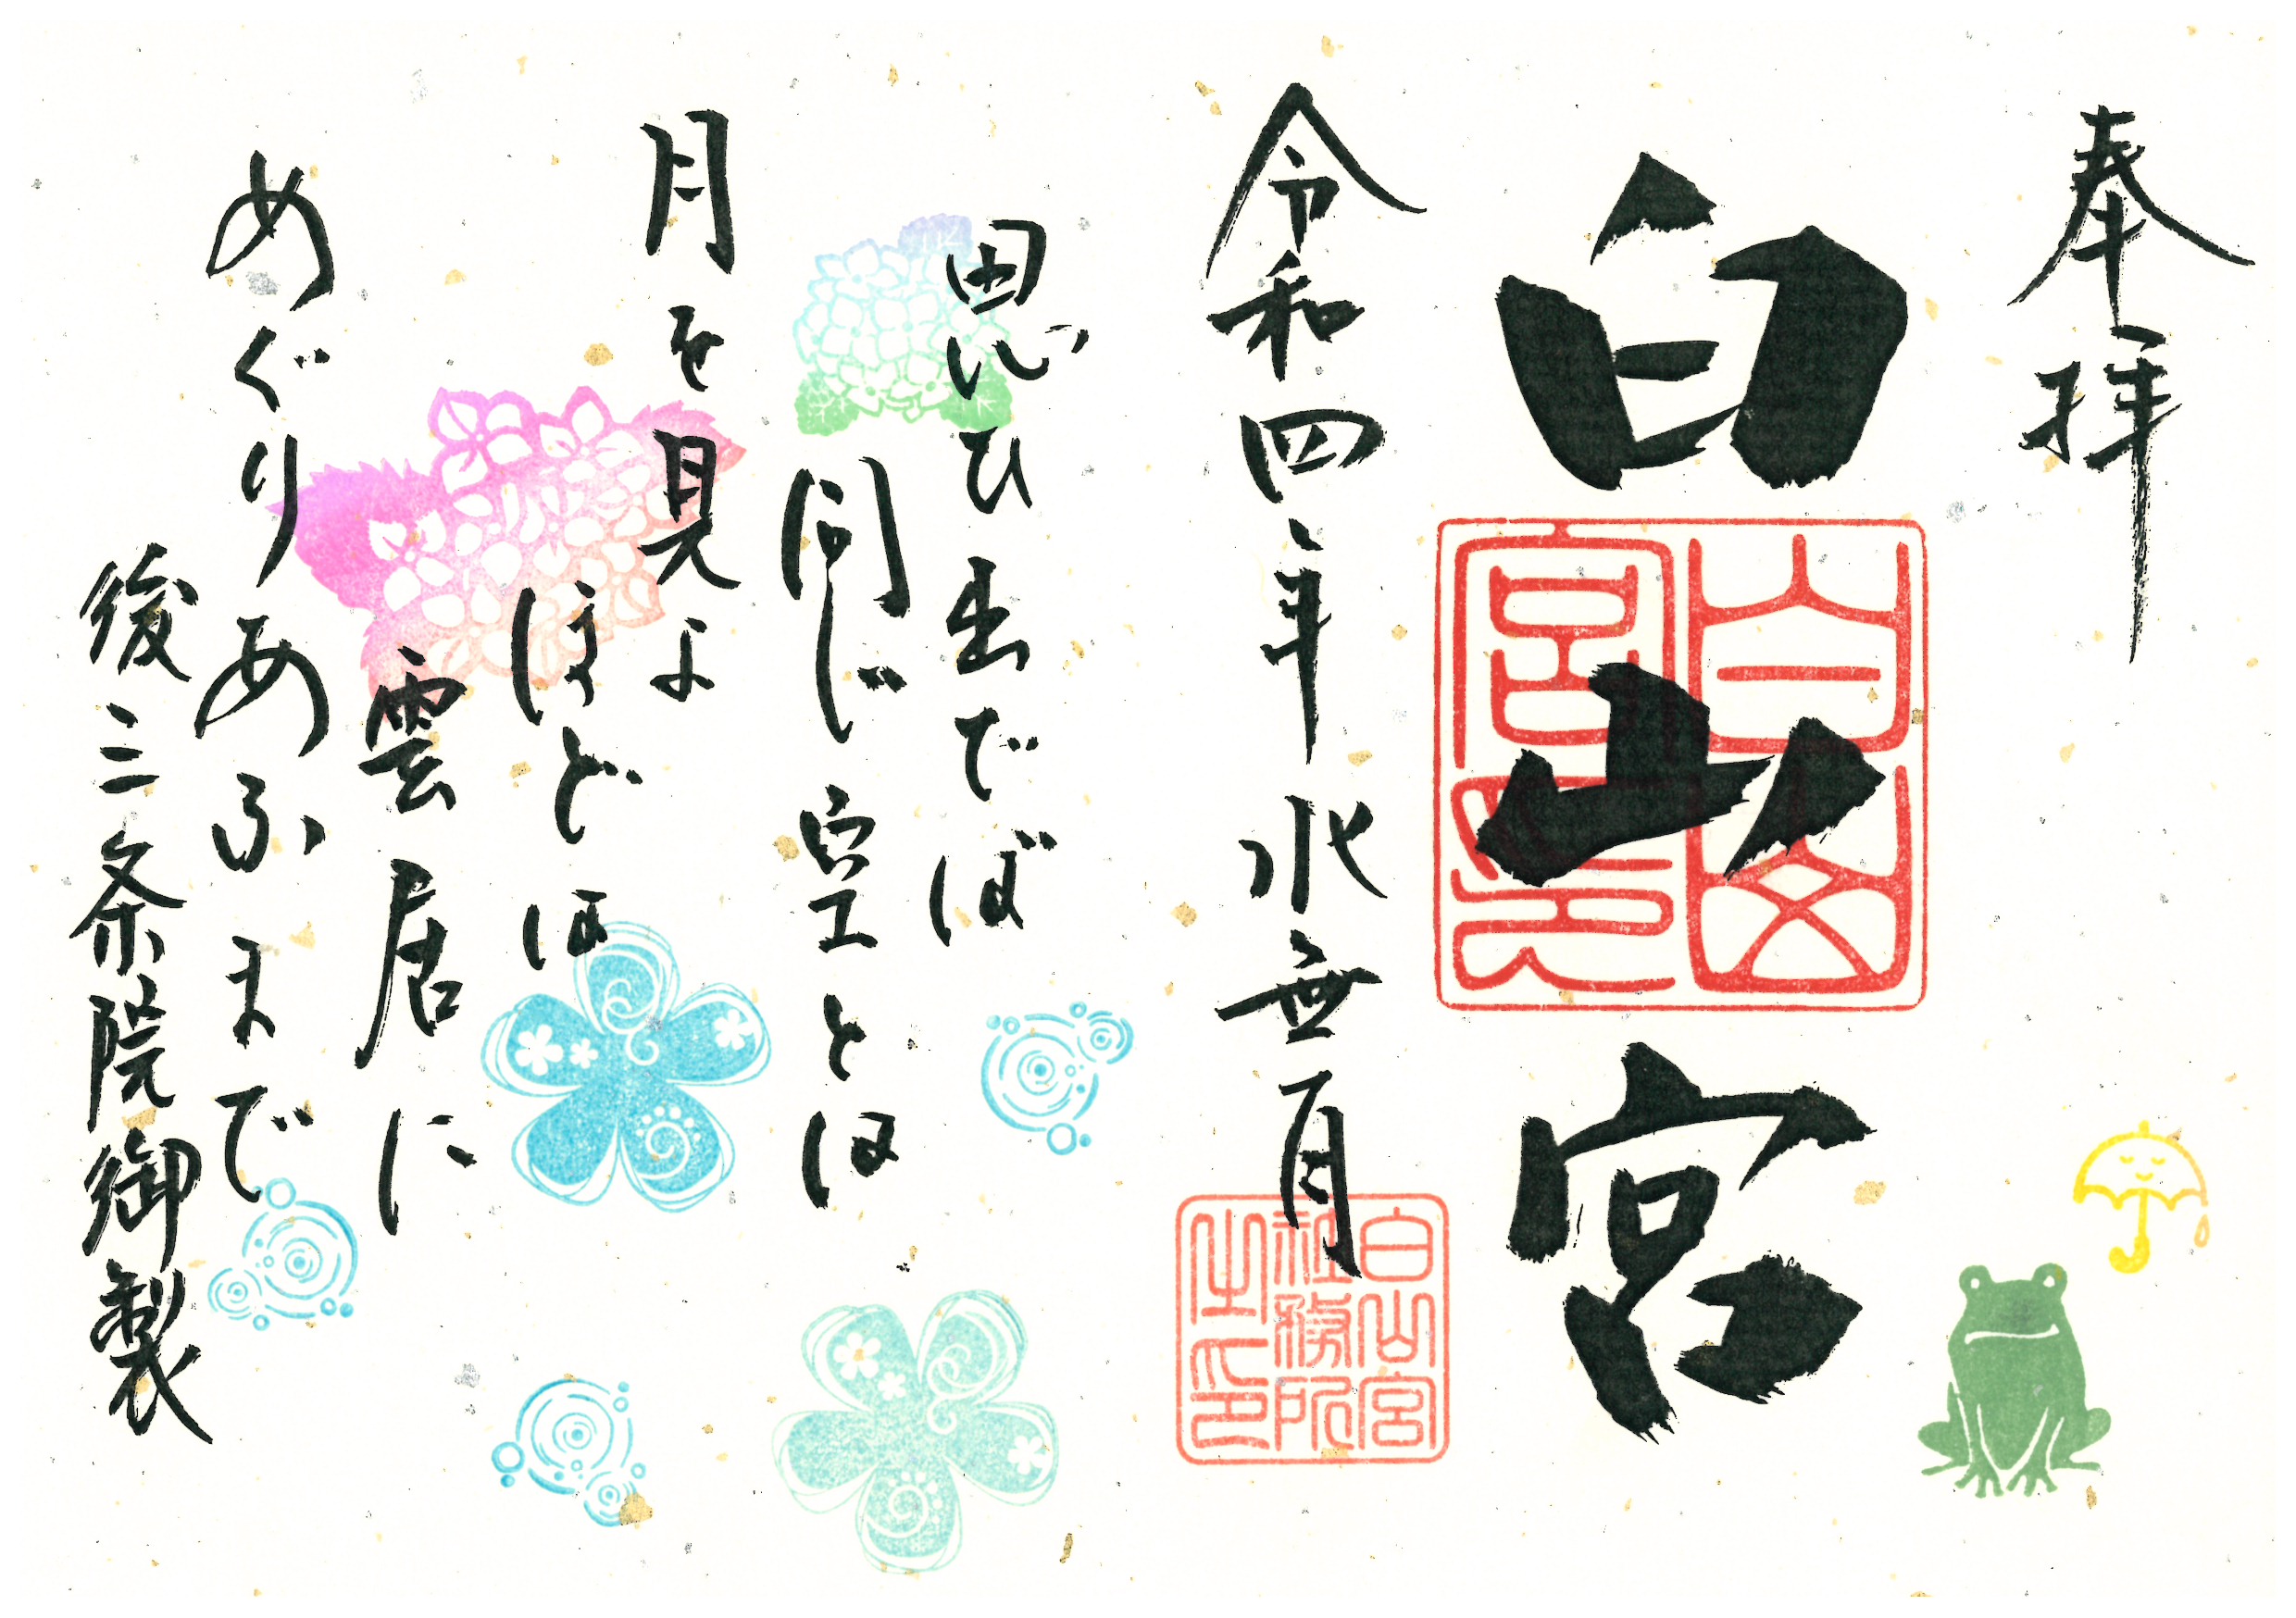 奉拝
白山宮
白山
宮印
令和四年水無月
白山宮
社務所
之印
思ひ出でば
同じ空とは
月を見よ
ほどは
雲居に
めぐりあふまで
後三条院御製